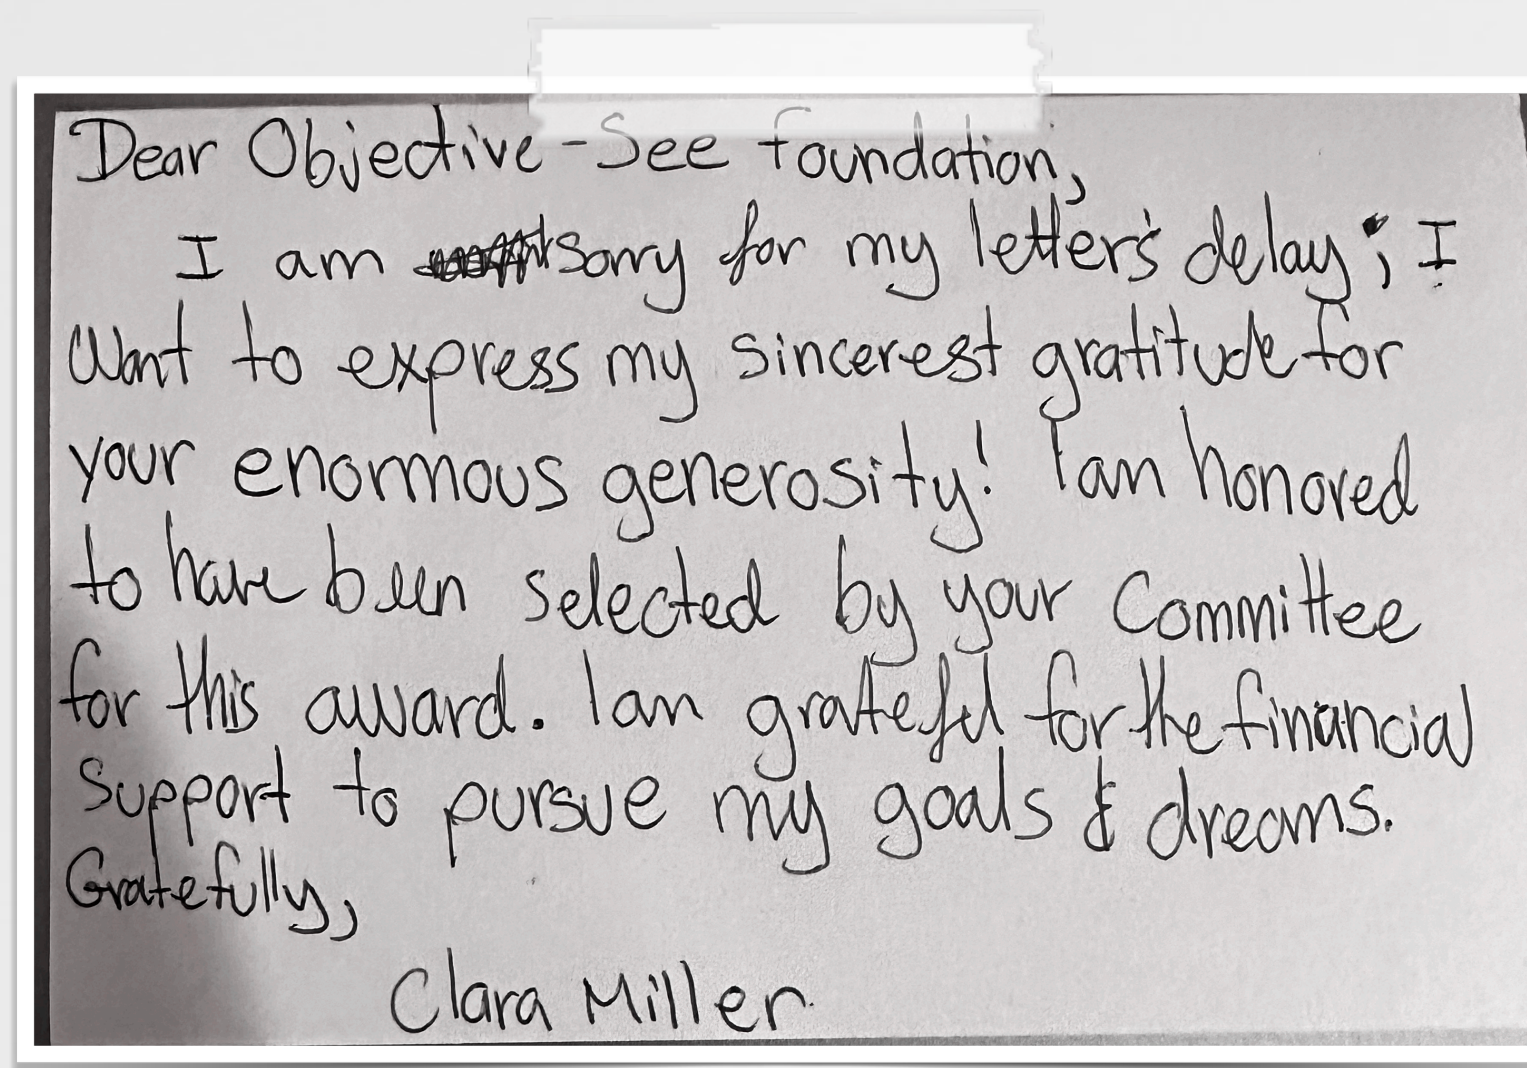 Dear Objective-See Foundation,
I am sorry for my letter's delay; I
want to express my sincerest gratitude for
your enormous generosity! I am honored
to have been selected by your Committee
for this award. I am grateful for the financial
support to pursue my goals & dreams.
Gratefully,
Clara Miller